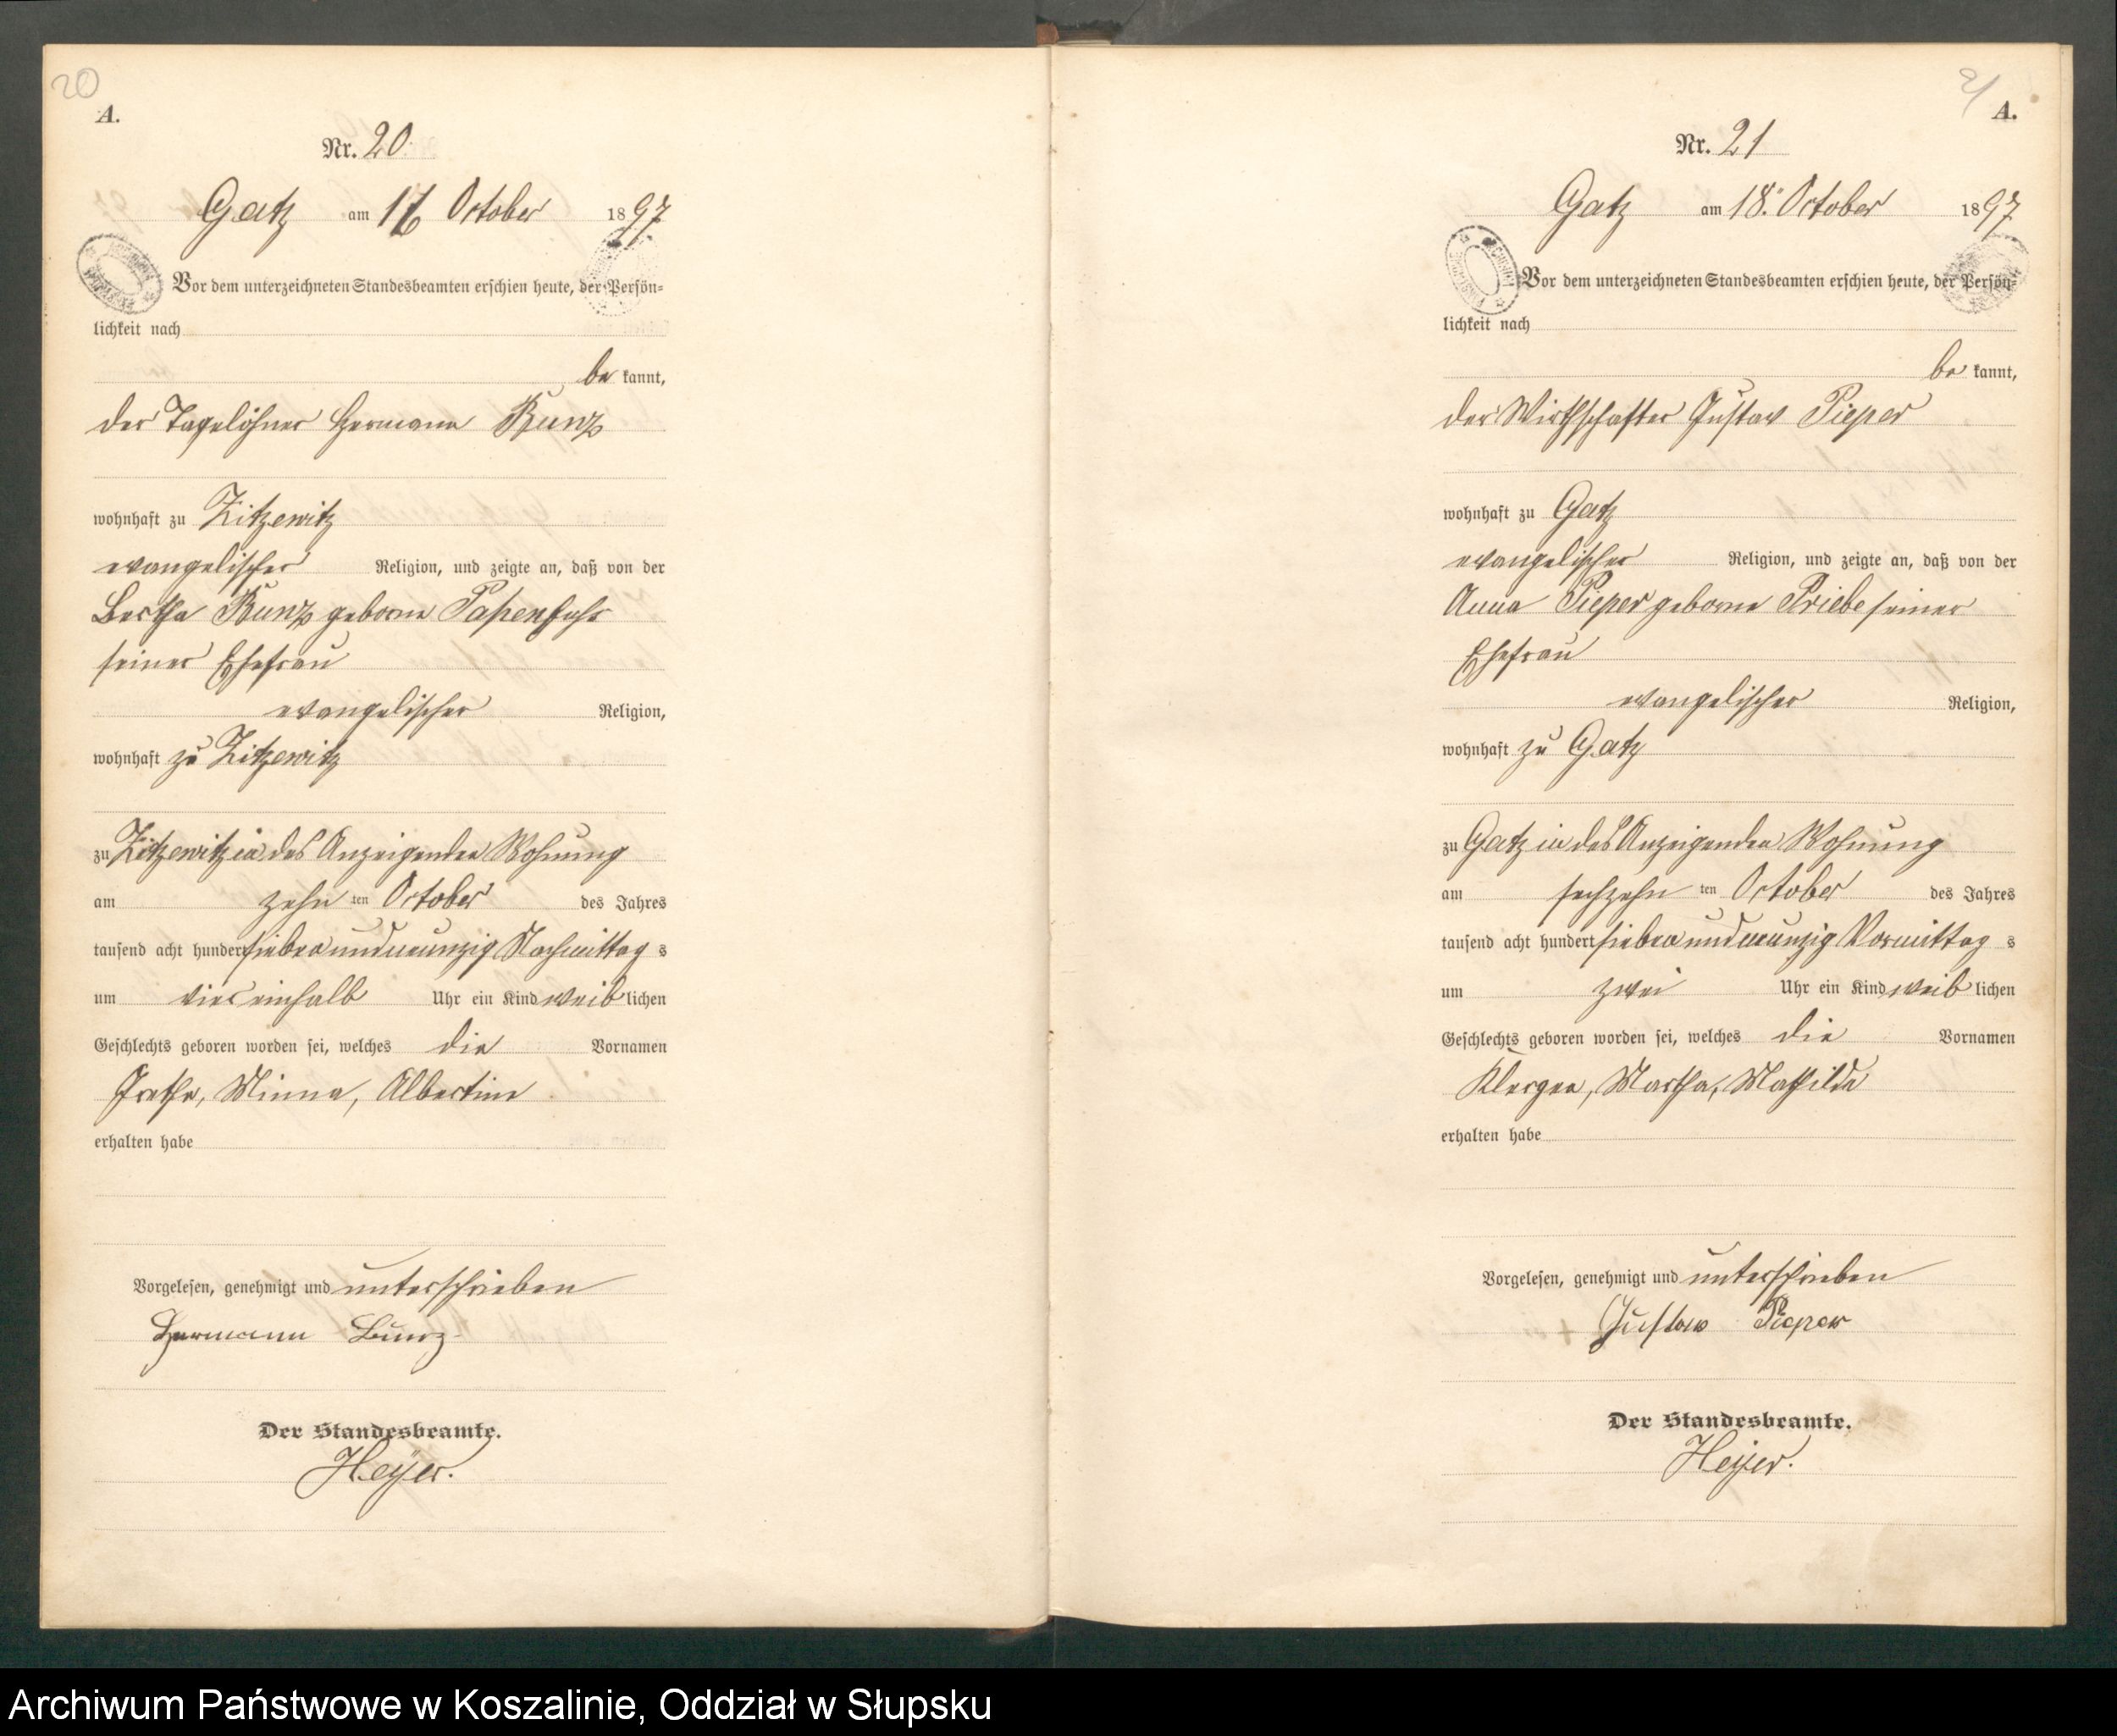 20
A.
Nr. 20
Gatz am 16 October 1897
Vor dem unterzeichneten Standesbeamten erschien heute, der Persön-
lichkeit nach
be kannt,
der Tagelöhner Hermann Bunz
wohnhaft zu Zitzewitz
evangelischer Religion, und zeigte an, daß von der
Bertha Bunz geborne Papenfuhs
seiner Ehefrau
evangelischer Religion,
wohnhaft zu Zitzewitz
zu Zitzewitz in des Anzeigenden Wohnung
am zehn ten October des Jahres
tausend acht hundert siebenundneunzig Nachmittag s
um vier einhalb Uhr ein Kind weib lichen
Geschlechts geboren worden sei, welches die Vornamen
Grethe, Minna, Albertine
erhalten habe
Vorgelesen, genehmigt und unterschrieben
Hermann Bunz
Der Standesbeamte.
Heyer.
21
A.
Nr. 21
Gatz am 18. October 1897
Vor dem unterzeichneten Standesbeamten erschien heute, der Persön-
lichkeit nach
be kannt,
der Wirthschafter Gustav Pieper
wohnhaft zu Gatz
evangelischer Religion, und zeigte an, daß von der
Anna Pieper geborne Priebe seiner
Ehefrau
evangelischer Religion,
wohnhaft zu Gatz
zu Gatz in des Anzeigenden Wohnung
am sechzehn ten October des Jahres
tausend acht hundert siebenundneunzig Vormittag s
um zwei Uhr ein Kind weib lichen
Geschlechts geboren worden sei, welches die Vornamen
Martha, Mathilde
erhalten habe
Vorgelesen, genehmigt und unterschrieben
Gustav Pieper
Der Standesbeamte.
Heyer.
Archiwum Państwowe w Koszalinie, Oddział w Słupsku